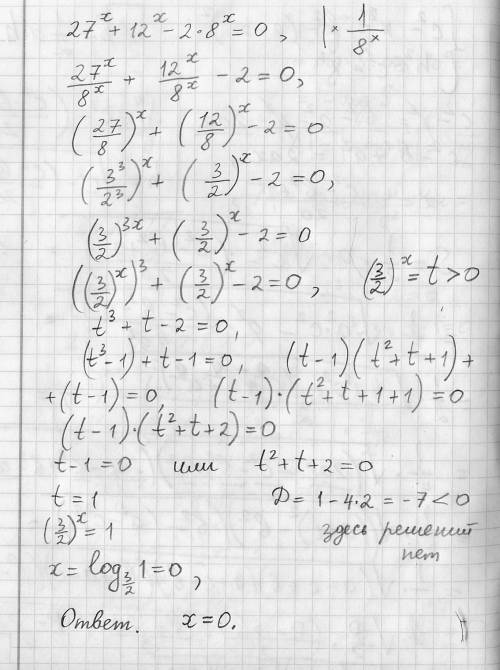 27^x + 12^x − 2 · 8^x = 0, | × 1/8^x
27^x/8^x + 12^x/8^x − 2 = 0,
(27/8)^x + (12/8)^x − 2 = 0
(3^3/2^3)^x + (3/2)^x − 2 = 0,
(3/2)^{3x} + (3/2)^x − 2 = 0
((3/2)^x)^3 + (3/2)^x − 2 = 0, (3/2)^x = t > 0
t^3 + t − 2 = 0,
(t^3 − 1) + t − 1 = 0, (t − 1)(t^2 + t + 1) +
+ (t − 1) = 0, (t − 1) · (t^2 + t + 1 + 1) = 0
(t − 1) · (t^2 + t + 2) = 0
t − 1 = 0 или t^2 + t + 2 = 0
t = 1 D = 1 − 4 · 2 = −7 < 0
(3/2)^x = 1 здесь решений
нет
x = log_{3/2} 1 = 0,
Ответ. x = 0.